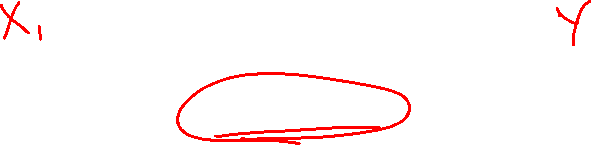 X₁ Y